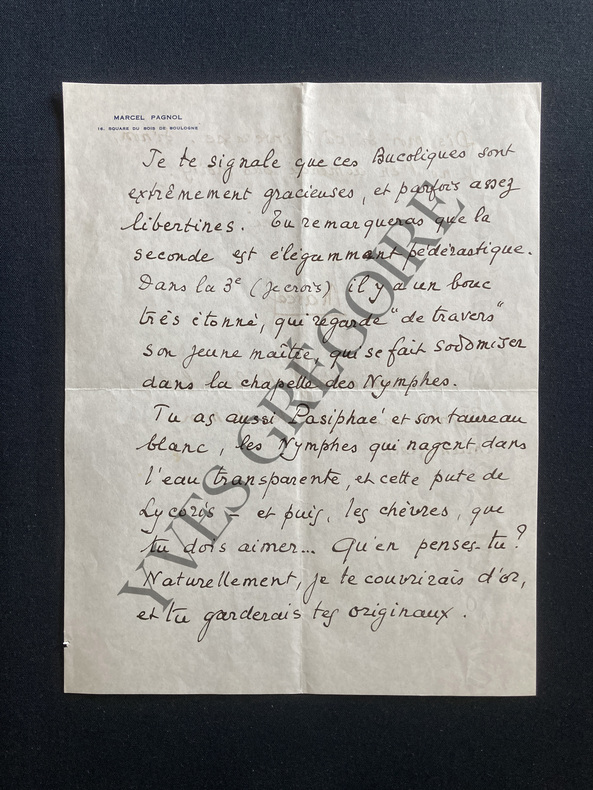 MARCEL PAGNOL
16, SQUARE DU BOIS DE BOULOGNE
Je te signale que ces Bucoliques sont
extrêmement gracieuses, et parfois assez
libertines. Tu remarqueras que la
seconde est élégamment pédérastique.
Dans la 3e (je crois) il y a un bouc
très étonné, qui regarde "de travers"
son jeune maître, qui se fait sodomiser
dans la chapelle des Nymphes.
Tu as aussi Pasiphaé et son taureau
blanc, les Nymphes qui nagent dans
l'eau transparente, et cette pute de
Lycoris - et puis, les chèvres, que
tu dois aimer... Qu'en penses-tu?
Naturellement, je te couvrirais d'or,
et tu garderais tes originaux.
YVES GRÉGOIRE